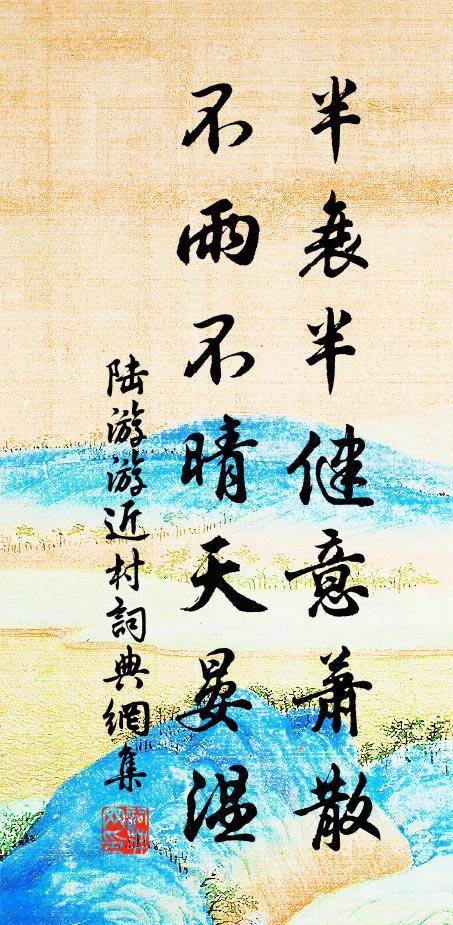 半衰半健意萧散
不雨不晴天晏温
陆游游近村詞典網集